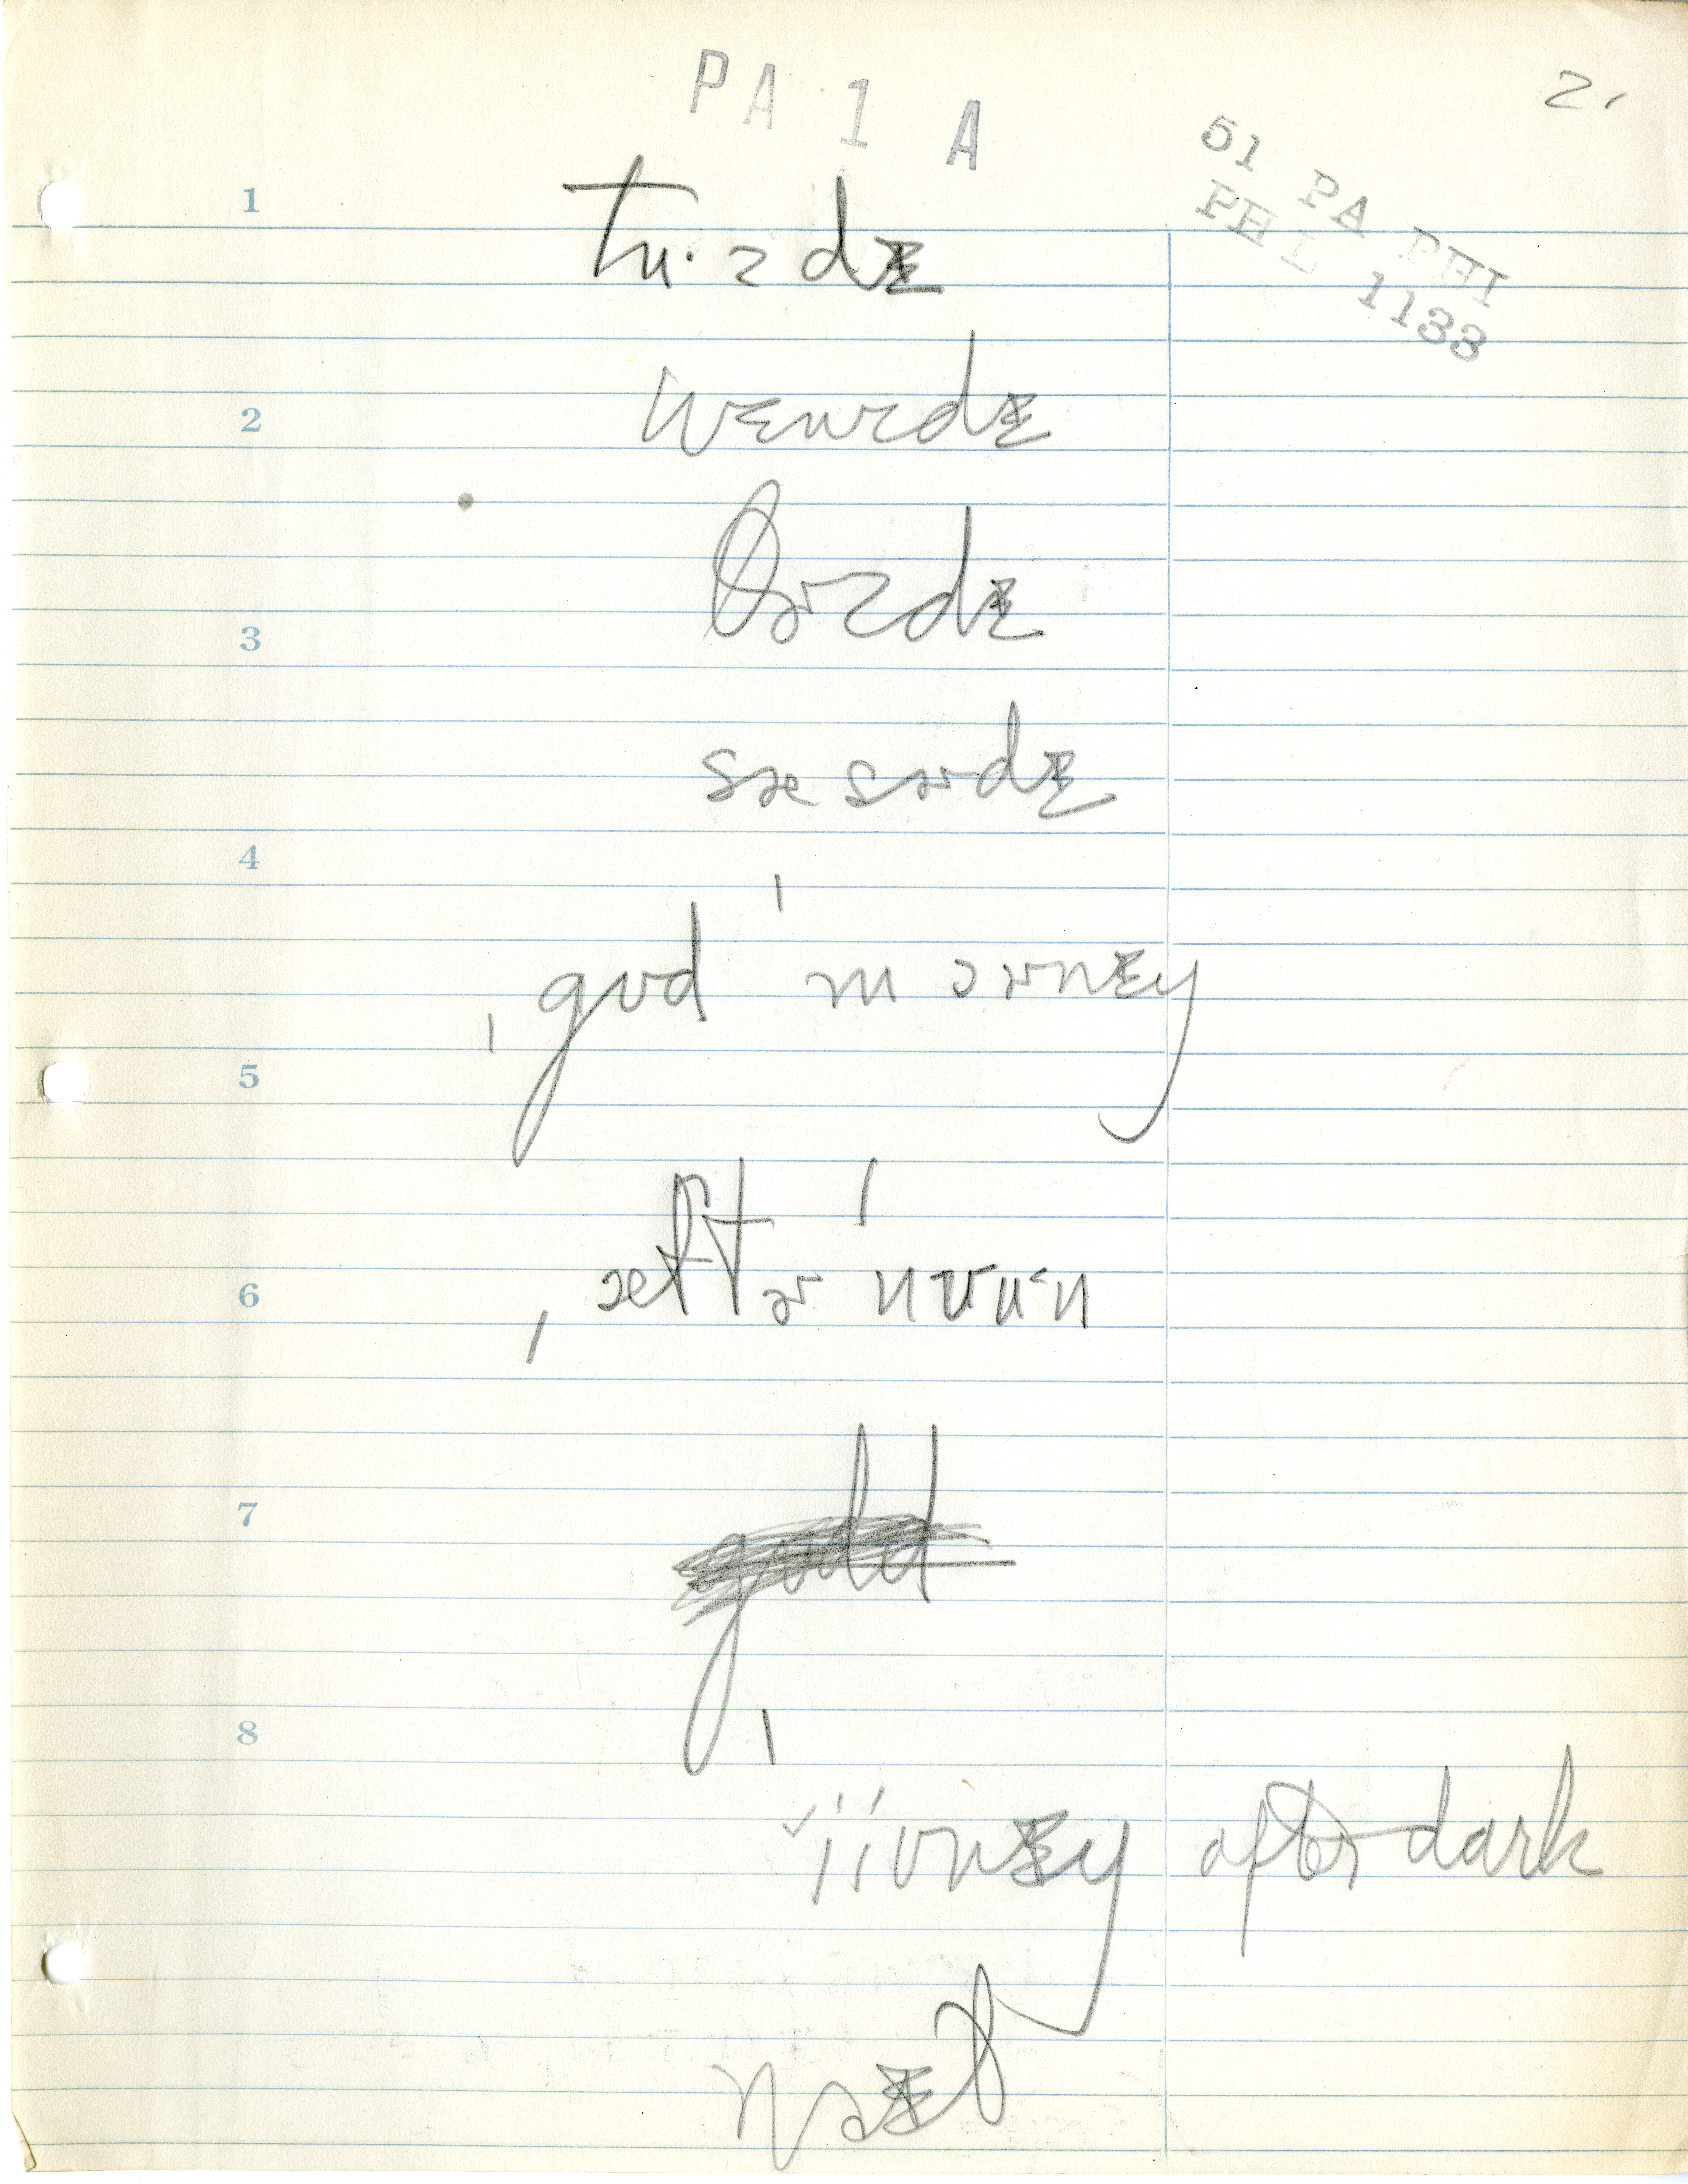 PA 1 A
2.
51 PA PHI
PHL 1133
1
tu·zdɪ
2
wɛnzdɪ
3
θɚzdɪ
sæsɚdɪ
4
ˌgʊd ˈmɔɚnɪŋ
5
6
ˌæftɚ ˈnʊu·n
7
8
ˈiivnɪŋ after dark